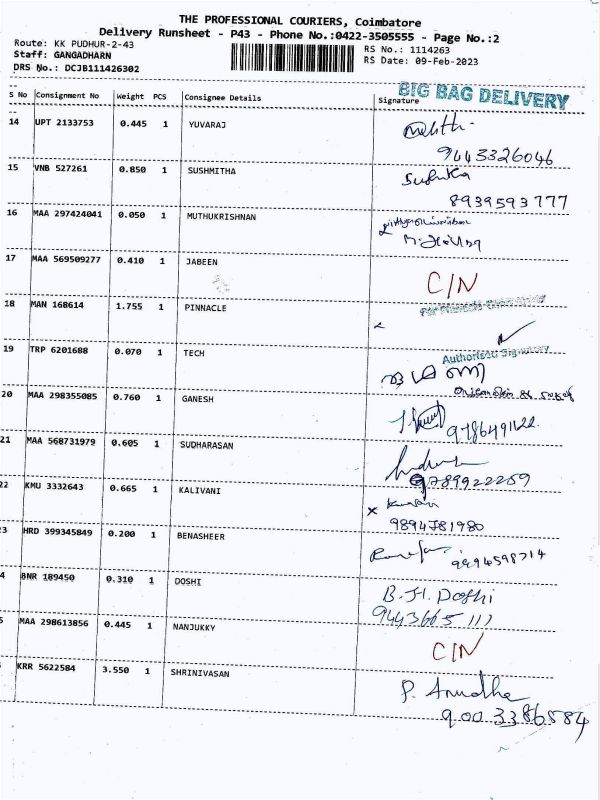 THE PROFESSIONAL COURIERS, Coimbatore
Delivery Runsheet - P43 - Phone No.:0422-3505555 - Page No.:2
Route: KK PUDHUR-2-43 RS No.: 1114263
Staff: GANGADHARN RS Date: 09-Feb-2023
DRS No.: DCJB111426302
BIG BAG DELIVERY
S No Consignment No Weight PCS Consignee Details Signature
14 UPT 2133753 0.445 1 YUVARAJ
9443326046
15 VNB 527261 0.850 1 SUSHMITHA
8939593777
16 MAA 297424041 0.050 1 MUTHUKRISHNAN
17 MAA 569509277 0.410 1 JABEEN C/N
18 MAN 168614 1.755 1 PINNACLE
Authorised Signatory
19 TRP 6201688 0.070 1 TECH
20 MAA 298355085 0.760 1 GANESH
21 MAA 568731979 0.605 1 SUDHARASAN
9789922259
22 KMU 3332643 0.665 1 KALIVANI
9894781980
3 HRD 399345849 0.200 1 BENASHEER
9994598714
4 BNR 189450 0.310 1 DOSHI B.H. Doshi
9443665111
5 MAA 298613856 0.445 1 NANJUKKY C/N
KRR 5622584 3.550 1 SHRINIVASAN P. Anudha
9003386584